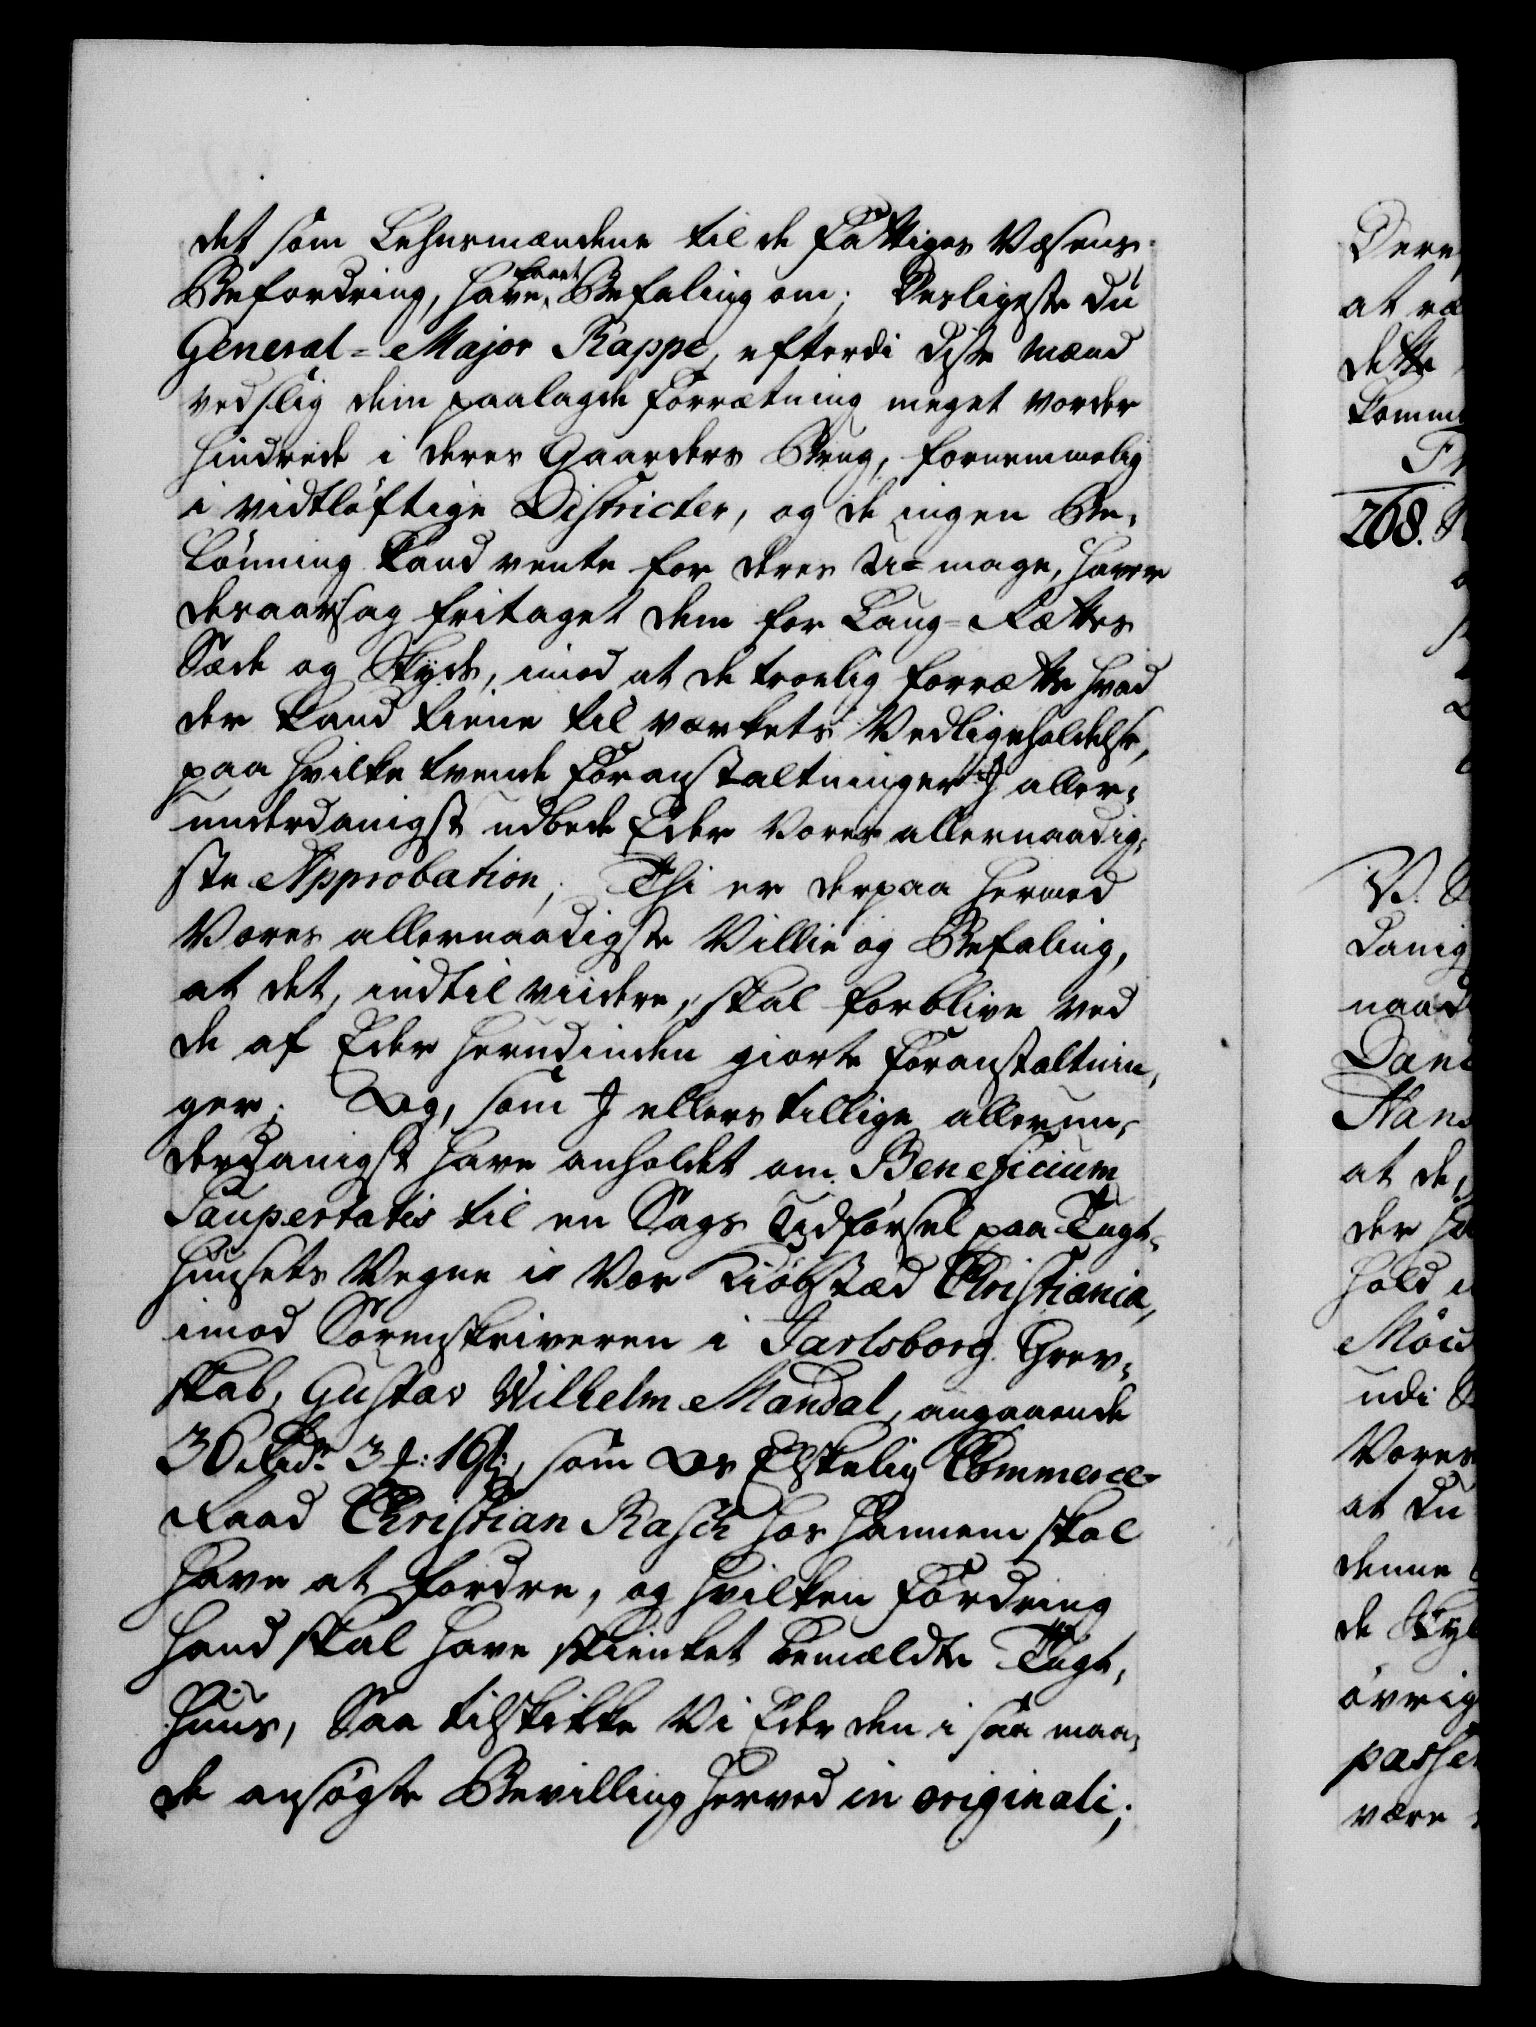 det som Lehnsmændene til de Fattiges Væsens
Befordring, have faaet Befaling om; Desligeste du
General-Major Kappe, efterdi disse Mænd
ved slig dem paalagde Forrætning meget vorder
hindrede i deres Gaarders Brug, fornemmelig
i vidtløftige Districter, og de ingen Be-
lønning kand vente for deres U-mage, haver
deraarsag fritaget dem for Laug-Rættes
Sæde og Skyds, imod at de troelig forrætte hvad
der kand tiene til værkets Vedligeholdelse,
paa hvilke tvende Foranstaltninger I aller-
underdanigst udbede Eder Vores allernaadig-
ste Approbation; Thi er derpaa hermed
Vores allernaadigste Villie og Befaling,
at det, indtil viidere, skal forblive ved
de af Eder herudinden giorte Foranstaltnin-
ger; Og, som I ellers tillige allerun-
derdanigst have anholdet om Beneficium
Paupertatis til en Sags Udførsel paa Tugt-
huusets Vegne i Vor Kiøbstæd Christiania,
imod Sorenskriveren i Jarlsborg Grev-
skab, Gustav Wilhelm Mandal, angaaende
36 Rdr. 3 f: 16 s:, som Os Elskelig Commerce-
Raad Christian Rasch hos hannem skal
have at fordre, og hvilken Fordring
hand skal have skienket bemældte Tugt-
huus, Saa tilskikke Vi Eder den i saa maa-
de ansøgte Bevilling herved in originali;
Deres
at
dette
komm
268.
V.
danig
naad
Hans
at de
der
hold
udi
Vores
at du
denne
de
øvrig
være